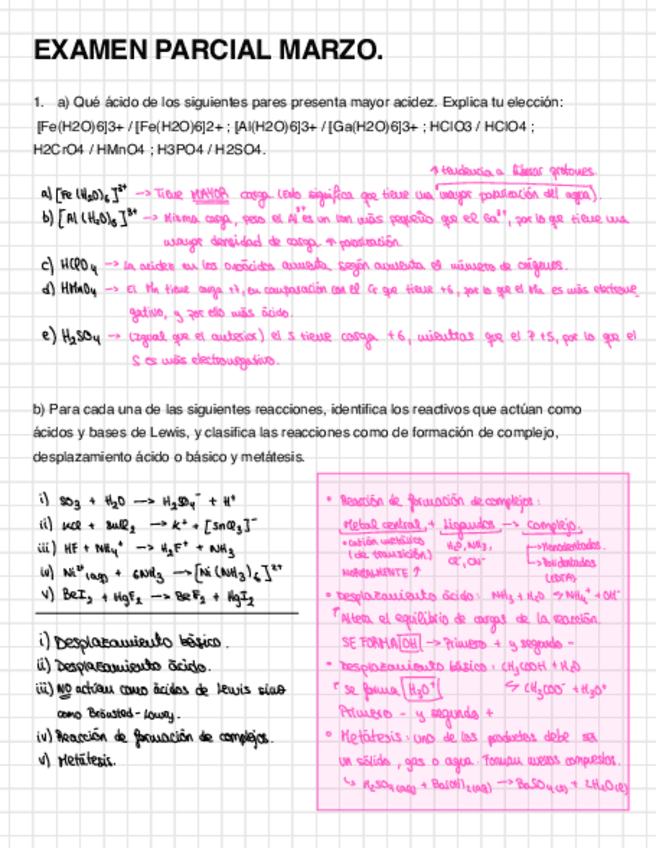 EXAMEN PARCIAL MARZO.
1. a) Qué ácido de los siguientes pares presenta mayor acidez. Explica tu elección:
[Fe(H2O)6]3+ / [Fe(H2O)6]2+ ; [Al(H2O)6]3+ / [Ga(H2O)6]3+ ; HClO3 / HClO4 ;
H2CrO4 / HMnO4 ; H3PO4 / H2SO4.
↑ tendencia a liberar protones.
a) [Fe(H₂O)₆]³⁺ → Tiene MAYOR carga (Esto significa que tiene una mayor polarización del agua).
b) [Al(H₂O)₆]³⁺ → Misma carga, pero el Al³⁺ es un ion más pequeño que el Ga³⁺, por lo que tiene una
mayor densidad de carga y polarización.
c) HClO₄ → La acidez en los oxoácidos aumenta según aumenta el número de oxígenos.
d) HMnO₄ → El Mn tiene carga +7, en comparación con el Cr que tiene +6, por lo que el Mn es más electrone
gativo, y por ello más ácido.
e) H₂SO₄ → (Igual que el anterior) el S tiene carga +6, mientras que el P +5, por lo que el
S es más electronegativo.
b) Para cada una de las siguientes reacciones, identifica los reactivos que actúan como
ácidos y bases de Lewis, y clasifica las reacciones como de formación de complejo,
desplazamiento ácido o básico y metátesis.
i) SO₃ + H₂O → HSO₄⁻ + H⁺
ii) KCl + SnCl₂ → K⁺ + [SnCl₃]⁻
iii) HF + NH₄⁺ → H₂F⁺ + NH₃
iv) Ni²⁺(aq) + 6NH₃ → [Ni(NH₃)₆]²⁺
v) BeI₂ + HgF₂ → BeF₂ + HgI₂
i) Desplazamiento básico.
ii) Desplazamiento ácido.
iii) NO actúan como ácidos de Lewis sino
como Brönsted-Lowry.
iv) Reacción de formación de complejos.
v) Metátesis.
• Reacción de formación de complejos:
Metal central + Ligandos → Complejo.
• catión metálico H₂O, NH₃, → Monodentados.
(de transición) Cl⁻, CN⁻ → Polidentados
NORMALMENTE ↑ (EDTA)
• Desplazamiento ácido: NH₃ + H₂O ⇌ NH₄⁺ + OH⁻
↑ Altera el equilibrio de cargas de la reacción.
SE FORMA OH → Primero + y segundo -
• Desplazamiento básico: CH₃COOH + H₂O
↑ se forma H₃O⁺ ⇌ CH₃COO⁻ + H₃O⁺
Primero - y segundo +
• Metátesis: uno de los productos debe ser
un sólido, gas o agua. Forman nuevos compuestos.
↳ H₂SO₄(aq) + Ba(OH)₂(aq) → BaSO₄(s) + 2H₂O(l)